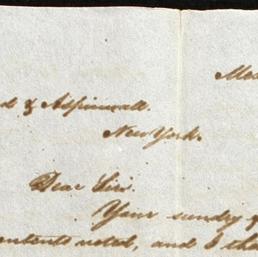 Mes
d & Aspinwall.
New York.
Dear Sirs.
Your sundry
contents noted, and I tha